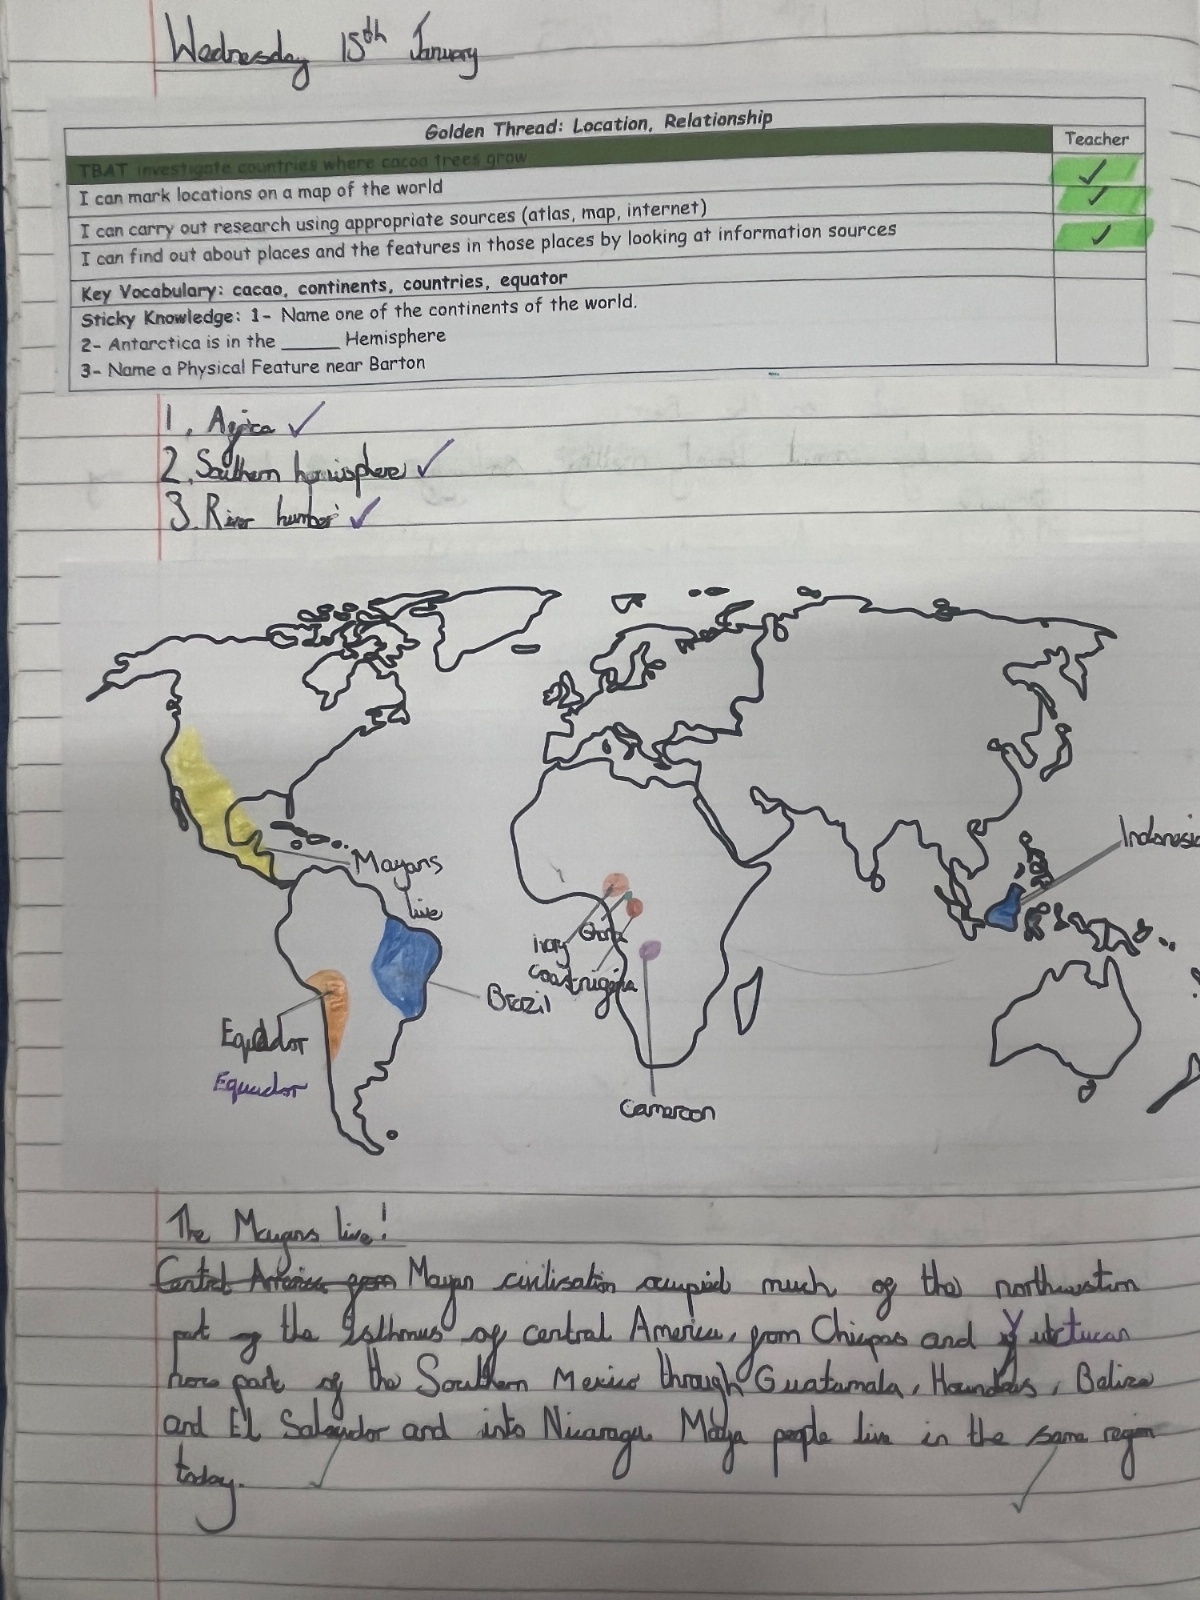 Wednesday 15th January
Golden Thread: Location, Relationship
Teacher
TBAT investigate countries where cacoa trees grow
I can mark locations on a map of the world
I can carry out research using appropriate sources (atlas, map, internet)
I can find out about places and the features in those places by looking at information sources
Key Vocabulary: cacao, continents, countries, equator
Sticky Knowledge: 1- Name one of the continents of the world.
2- Antarctica is in the _____ Hemisphere
3- Name a Physical Feature near Barton
1, Africa ✓
2, Southern hemisphere ✓
3. River humber ✓
Indonesia
Mayans
live
ivory Ghana
coast nigeria
Brazil
Equador
Equador
Cameroon
The Mayans live!
Central America from Mayan civilisation occupied much of the northwestern
part of the Isthmus of central America, from Chiapas and
part of the Southern Mexico through Guatamala, Hounduas, Belize
and El Salavdor and into Nicaragu Maya people live in the same region
today.